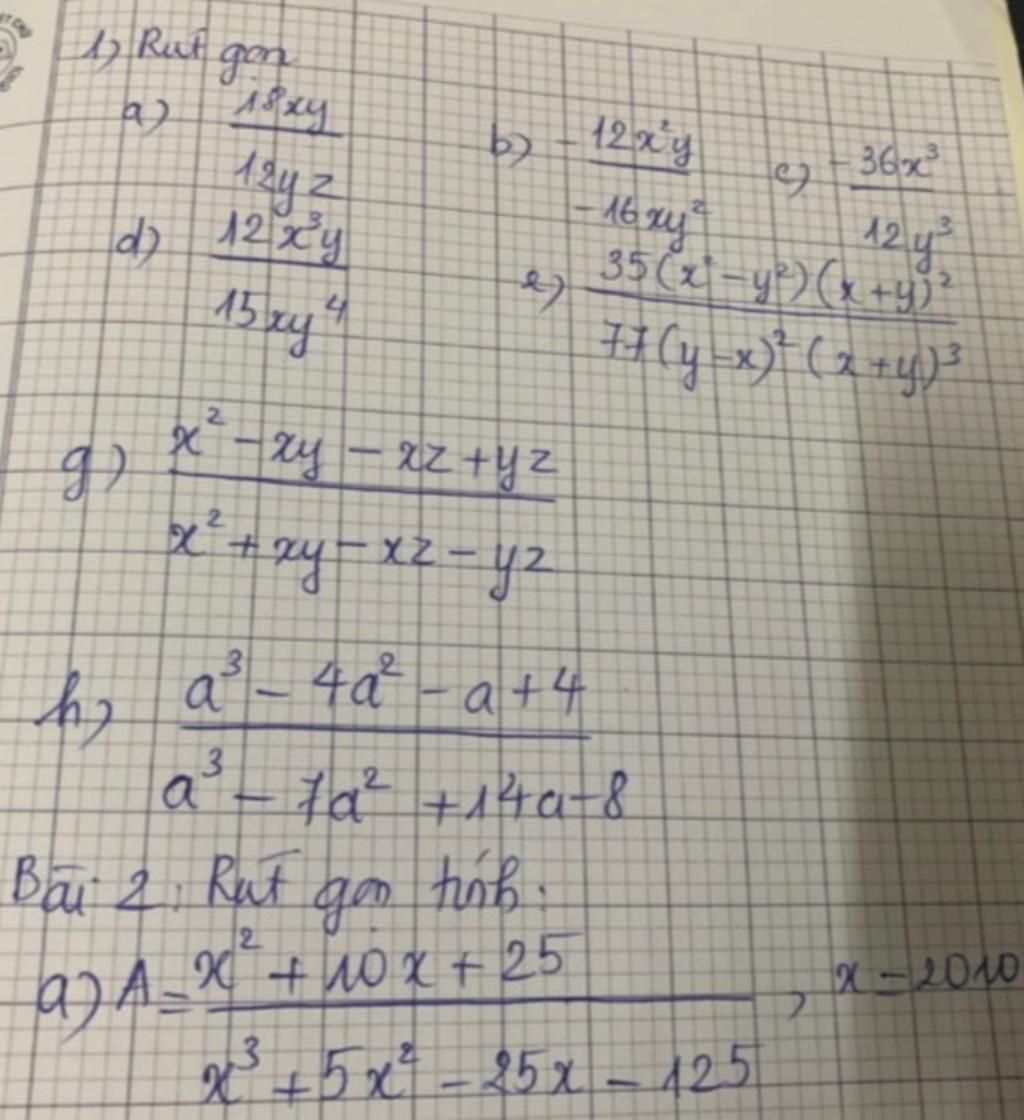 1) Rut gọn
a) 18xy / 12yz
b) -12x²y / -16xy²
c) -36x³ / 12y³
d) 12x³y / 15xy⁴
e) 35(x²-y²)(x+y)² / 77(y-x)²(x+y)³
g) x²-xy-xz+yz / x²+xy-xz-yz
h) a³-4a²-a+4 / a³-7a²+14a-8
Bài 2: Rut gọn tính:
a) A = x²+10x+25 / x³+5x²-25x-125 , x=2010